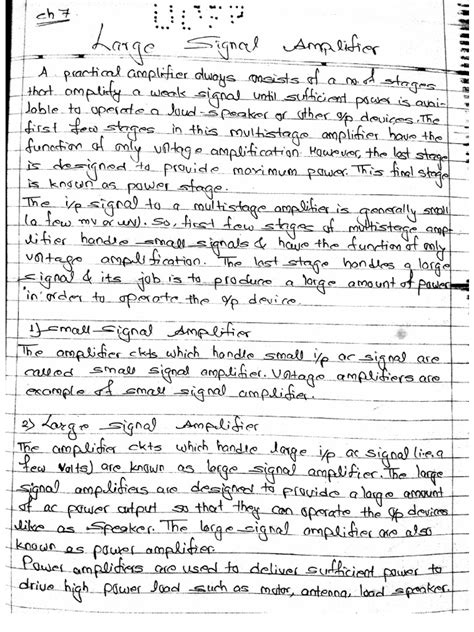 ch 7
Large Signal Amplifier
A practical amplifier always consists of a no. of stages
that amplify a weak signal until sufficient power is avai-
lable to operate a loud-speaker or other o/p devices. The
first few stages in this multistage amplifier have the
function of only voltage amplification. However, the last stage
is designed to provide maximum power. This final stage
is known as power stage.
The i/p signal to a multistage amplifier is generally small
(a few mv or uv). So, first few stages of multistage amp-
lifier handle small signals & have the function of only
voltage amplification. The last stage handles a large
signal & its job is to produce a large amount of power
in order to operate the o/p device.
1) Small Signal Amplifier
The amplifier ckts which handle small i/p ac signal are
called small signal amplifier. Voltage amplifiers are
example of small signal amplifier.
2) Large Signal Amplifier
The amplifier ckts which handle large i/p ac signal (i.e. a
few volts) are known as large signal amplifier. The large
signal amplifiers are designed to provide a large amount
of ac power output so that they can operate the o/p devices
like as speaker. The large signal amplifier are also
known as power amplifier.
Power amplifiers are used to deliver sufficient power to
drive high power load such as motor, antenna, load speaker.